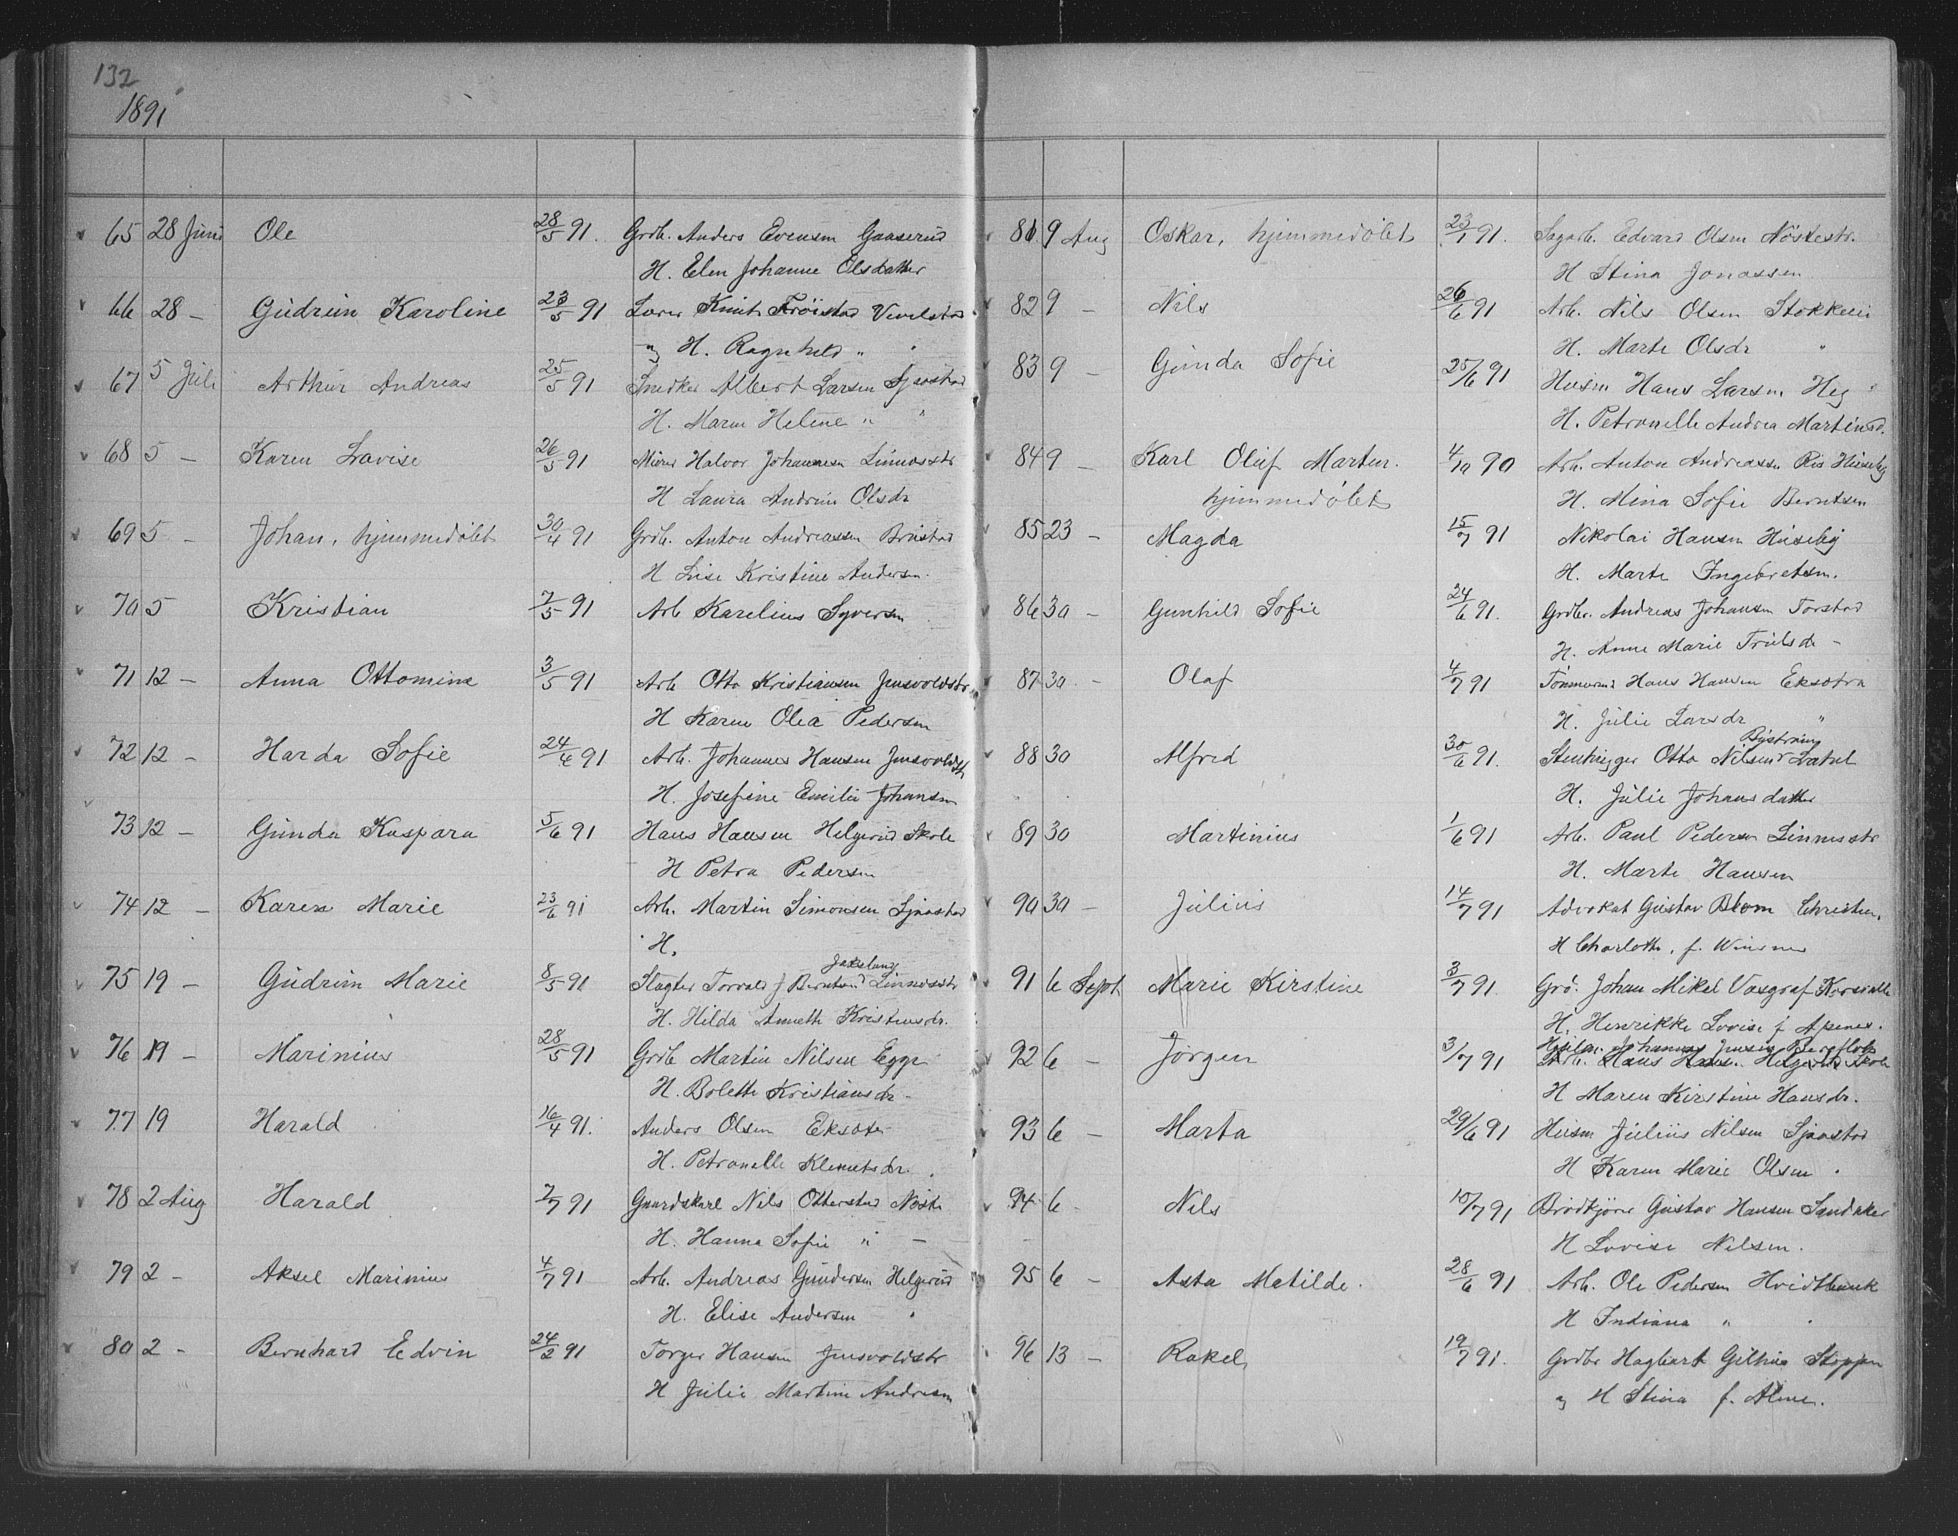 132
1891
65 28 Juni Ole 28/5 91. Grdb. Anders Evensen Gaaserud
H. Elen Johanne Olsdatter
66 28 – Gudrun Karoline 23/5 91 Lærer Knut Frøistad Vivelstad
og H. Ragnhild " "
67 5 Juli Arthur Andreas 25/5 91 Snedker Albert Larsen Sjaastad
H. Maren Helene " "
68 5 – Karen Lovise 26/5 91 Murer Halvor Johannesen Linnesstr
H Laura Andrine Olsdr
69 5 – Johan, hjemmedøbt 30/4 91 Grdb. Anton Andreassen Brustad
H Lise Kristine Andersen.
70 5 – Kristian 7/5 91 Arb Karelius Syversen
71 12 – Anna Ottomine 3/5 91 Arb Otto Kristiansen Jensvoldstr
H Karen Olea Pedersen
72 12 – Harda Sofie 24/4 91 Arb. Johannes Hansen Jensvoldstr
H. Josefine Emilie Johansen
73 12 – Gunda Kaspara 5/6 91 Hans Hansen Helgerud Skole
H Petra Pedersen
74 12 – Karen Marie 23/6 91 Arb. Martin Simonsen Sjaastad
H.
75 19 – Gudrun Marie 8/5 91 Slagter Torvald J Berntsen Linnesstr
H. Hilda Annette Kristensdr.
76 19 – Marinius 28/5 91 Grdb Martin Nilsen Egge
H. Bolette Kristiansdr.
77 19 Harald 16/4 91. Anders Olsen Eksæter
H. Petronelle Klemetsdr.
78 2 Aug Harald 7/7 91 Gaardskarl Nils Otterstad Nøste
H. Hanna Sofie " –
79 2 – Aksel Marinius 4/7 91 Arb. Andreas Gundersen Helgerud
H. Elise Andersen "
80 2 – Bernhard Edvin 24/2 91 Torger Hansen Jensvoldstr
H Julie Martine Andresen
81 9 Aug Oskar, hjemmedøbt 23/1 91. Sagarb. Edvard Olsen Nøstestr.
H Stina Jonassen
82 9 – Nils 26/6 91 Arb. Nils Olsen Stokkeei
H. Marte Olsdr "
83 9 – Gunda Sofie 25/6 91 Husm Hans Larsen Heg "
H. Petronelle Andrea Martinsd.
84 9 – Karl Oluf Marten. 4/10 90 Arb. Anton Andreassen Ris Huseby
hjemmedøbt H. Mina Sofie Berntsen
85 23 – Magda 15/7 91 Nikolai Hansen Huseby
H. Marte Ingebretsen.
86 30 – Gunhild Sofie 24/6 91. Grdbr. Andreas Johansen Torstad
H. Anne Marie Trulsdr –
87 30 – Olaf 4/7 91 Tømmermd Hans Hansen Eksætra
H. Julie Larsdr "
88 30 Alfred 30/6 91. Stenhugger Otto Nilsen
H. Julie Johansdatter
89 30 Martinius 1/6 91 Arb. Paul Pedersen Linnesstr
H. Marte Hansen
90 30 – Julius 14/7 91 Advokat Gustav Blom Christian.
H Charlotte, f.
91 6 Sept Marie Kirstine 3/7 91. Grd. Johan Mikal
H. Henrikke Lovise f
92 6 – Jørgen 3/7 91 Johannes Jensen Bergflødt
Arb. Hans Hansen Helgerud Skole
H Maren Kirstine Hansdr.
93 6 – Marta 29/6 91 Husm Julius Nilsen Sjaastad
H Karen Marie Olsen
94 6 – Nils 10/7 91 Brødkjører Gustav Hansen Sandaker
H Lovise Nilsen.
95 6 – Asta Matilde. 28/6 91 Arb. Ole Pedersen Hvidtbank
H Indiana "
96 13 – Rakel 19/7 91. Grdbr Hagbart Stoppen
og H Stina f. Alme.